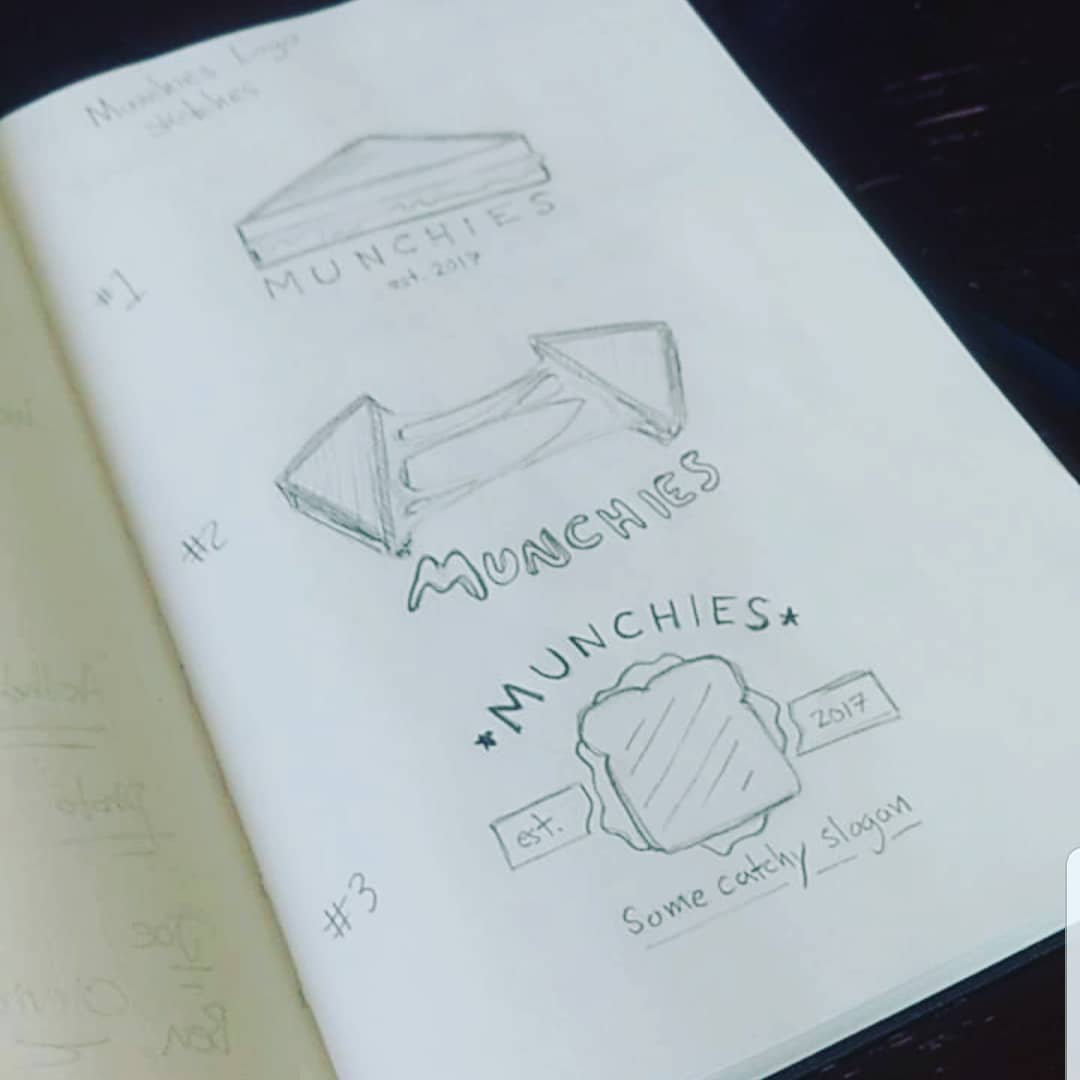 Munchies Logo
sketches
#1
MUNCHIES
est. 2017
#2
MUNCHIES
#3
*MUNCHIES*
est.
2017
Some catchy slogan